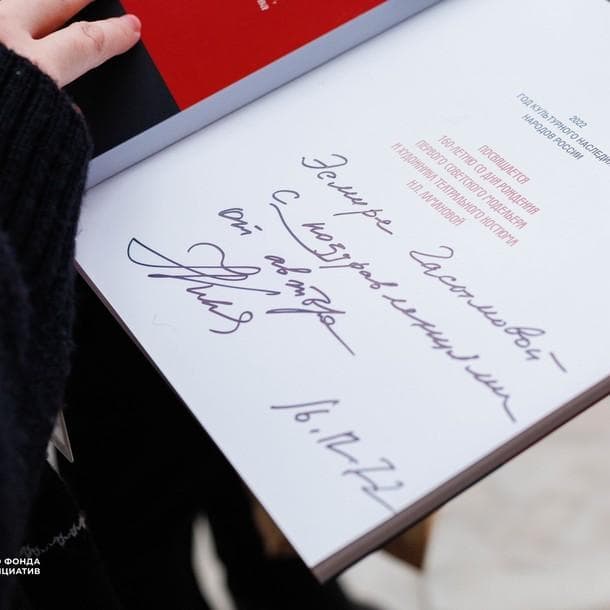 2022
ГОД КУЛЬТУРНОГО НАСЛЕДИЯ
НАРОДОВ РОССИИ
ПОСВЯЩАЕТСЯ
160-ЛЕТИЮ СО ДНЯ РОЖДЕНИЯ
ПЕРВОГО СОВЕТСКОГО МОДЕЛЬЕРА
И ХУДОЖНИКА ТЕАТРАЛЬНОГО КОСТЮМА
Н.П. ЛАМАНОВОЙ
Эсмире Гасымовой
с поздравлениями
от автора
16.12.22
ФОНДА